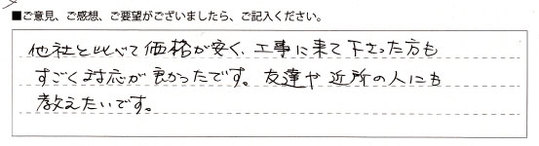 ■ご意見、ご感想、ご要望がございましたら、ご記入ください。
他社と比べて価格が安く、工事に来て下さった方も
すごく対応が良かったです。友達や近所の人にも
教えたいです。